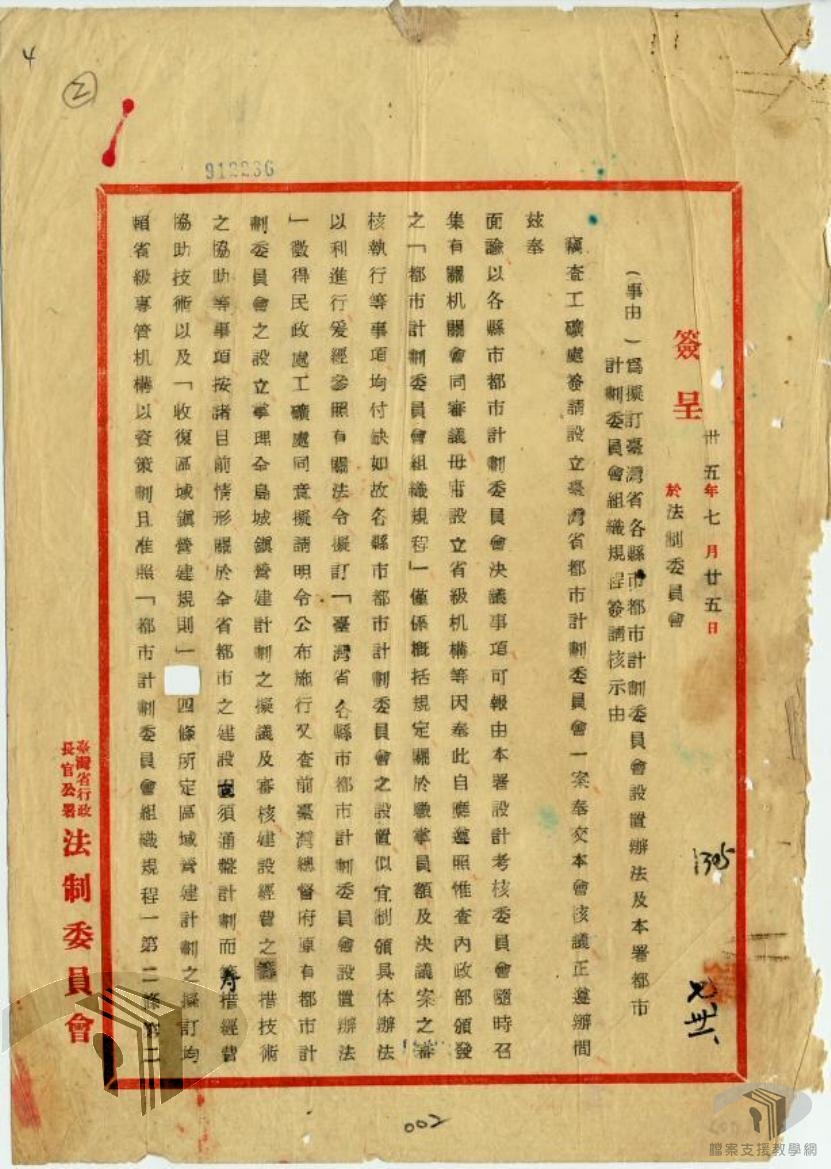 4
②
912236
簽呈
卅五年七月廿五日
於法制委員會
（事由）爲擬訂臺灣省各縣市都市計劃委員會設置辦法及本署都市
計劃委員會組織規程簽請核示由
竊查工礦處簽請設立臺灣省都市計劃委員會一案奉交本會核議正遵辦間
玆奉
面諭以各縣市都市計劃委員會決議事項可報由本署設計考核委員會隨時召
集有關机關會同審議毋庸設立省級机構等因奉此自應遵照惟查內政部頒發
之「都市計劃委員會組織規程」僅係概括規定關於職掌員額及決議案之審
核執行等事項均付缺如故各縣市都市計劃委員會之設置似宜制頒具体辦法
以利進行爰經參照有關法令擬訂「臺灣省各縣市都市計劃委員會設置辦法
」徵得民政處工礦處同意擬請明令公布施行又查前臺灣總督府原有都市計
劃委員會之設立掌理全島城鎮營建計劃之擬議及審核建設經費之籌措技術
之協助等事項按諸目前情形關於全省都市之建設須通盤計劃而籌措經費
協助技術以及「收復區城鎮營建規則」四條所定區域營建計劃之擬訂均
賴省級專管机構以資策劃且准照「都市計劃委員會組織規程」第二條第二
臺灣省行政
長官公署
法制委員會
1305
002
檔案支援教學網